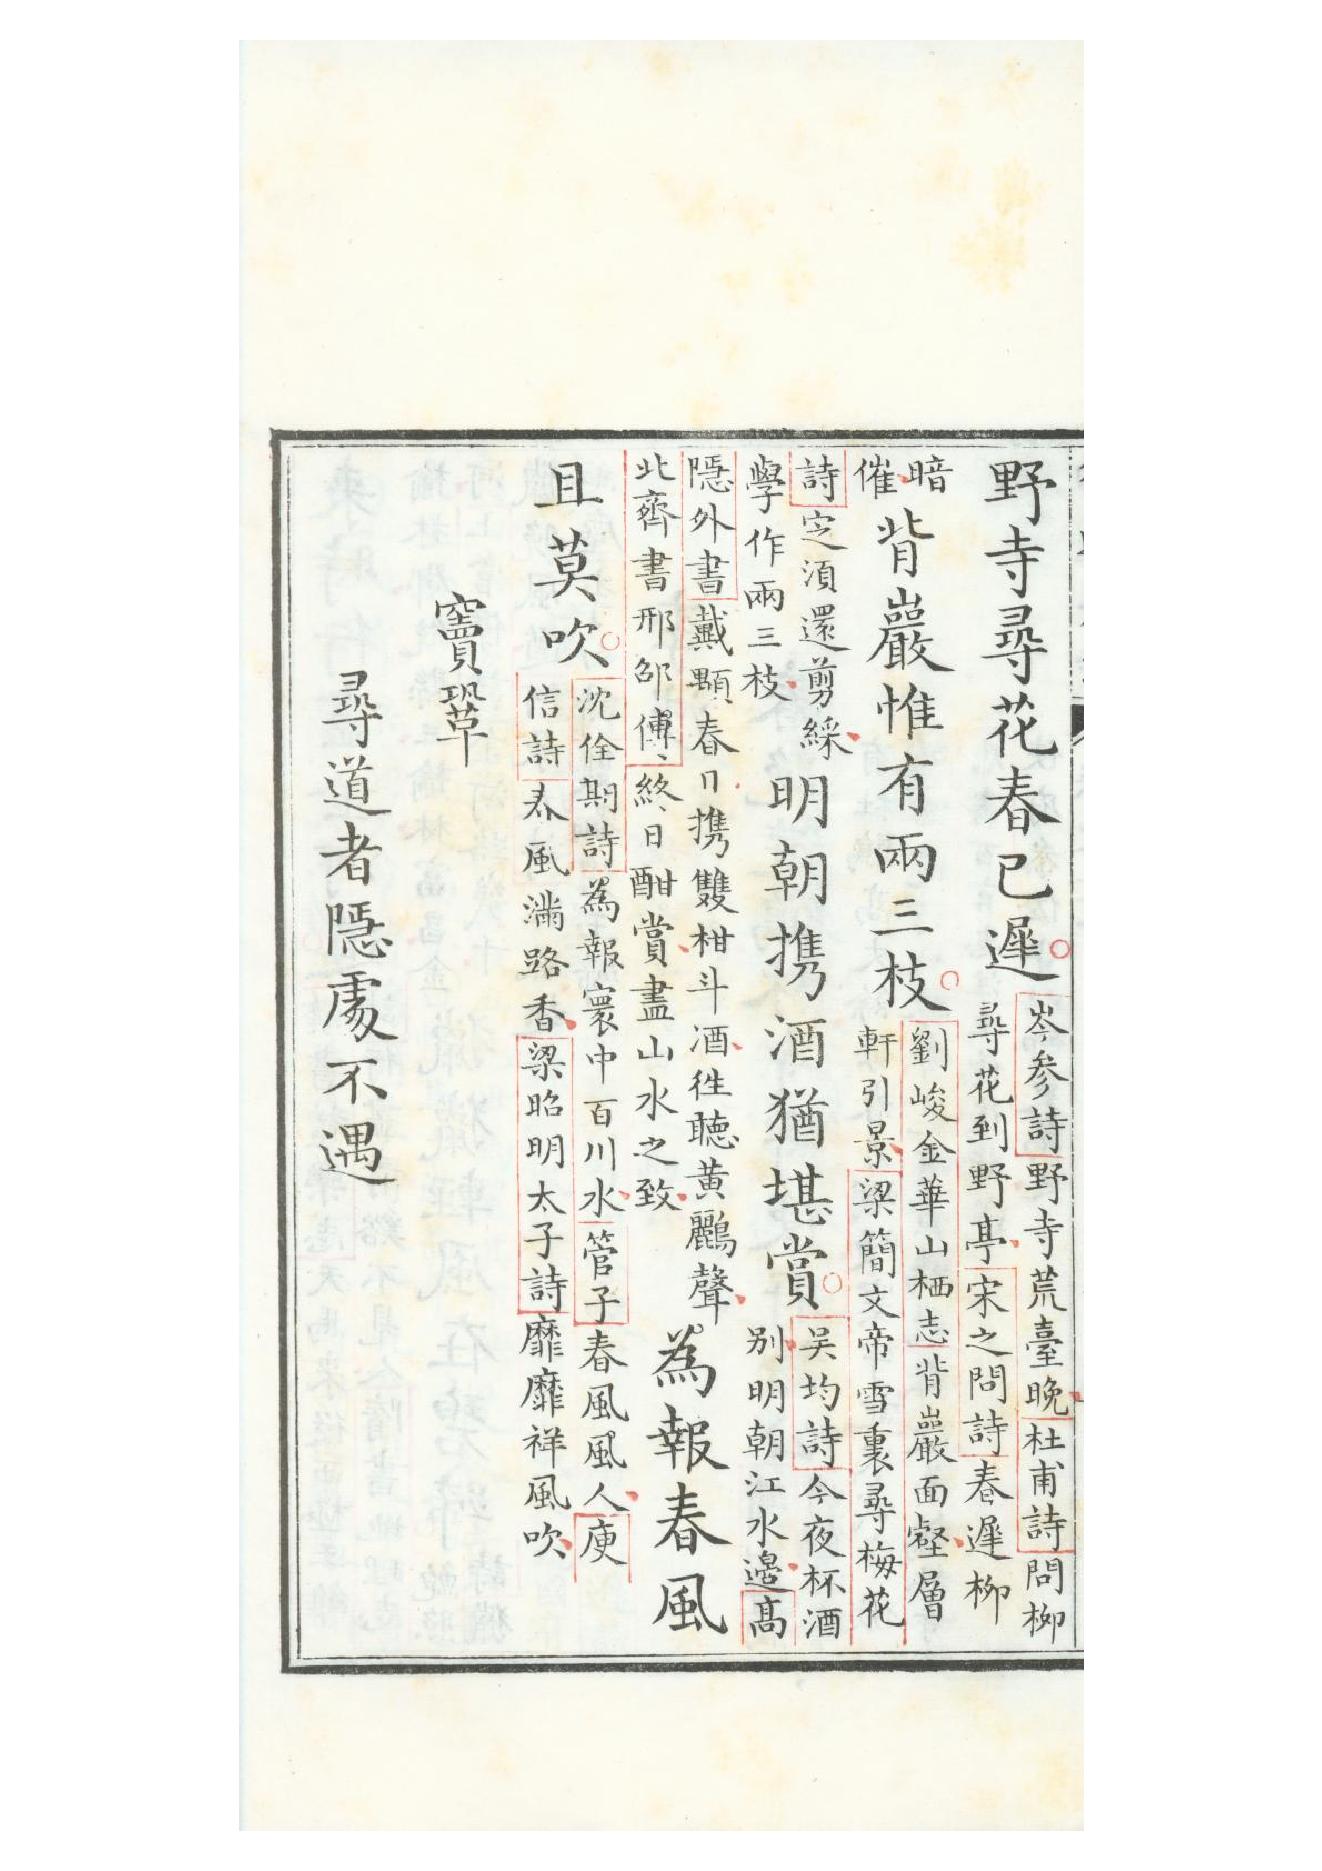 野寺尋花春已遲
岑参詩野寺荒臺晚杜甫詩問柳
尋花到野亭宋之問詩春遲柳
暗
催
背巖惟有兩三枝
劉峻金華山栖志背巖面壑層
軒引景梁簡文帝雪裏尋梅花
詩定須還剪綵
學作兩三枝
明朝携酒猶堪賞
吴均詩今夜杯酒
别明朝江水邉髙
隱外書戴顒春日携雙柑斗酒徃聽黃鸝聲
北齊書邢邵傳終日酣賞盡山水之致
為報春風
且莫吹
沈佺期詩為報寰中百川水管子春風風人庾
信詩春風滿路香梁昭明太子詩靡靡祥風吹
竇鞏
尋道者隱處不遇